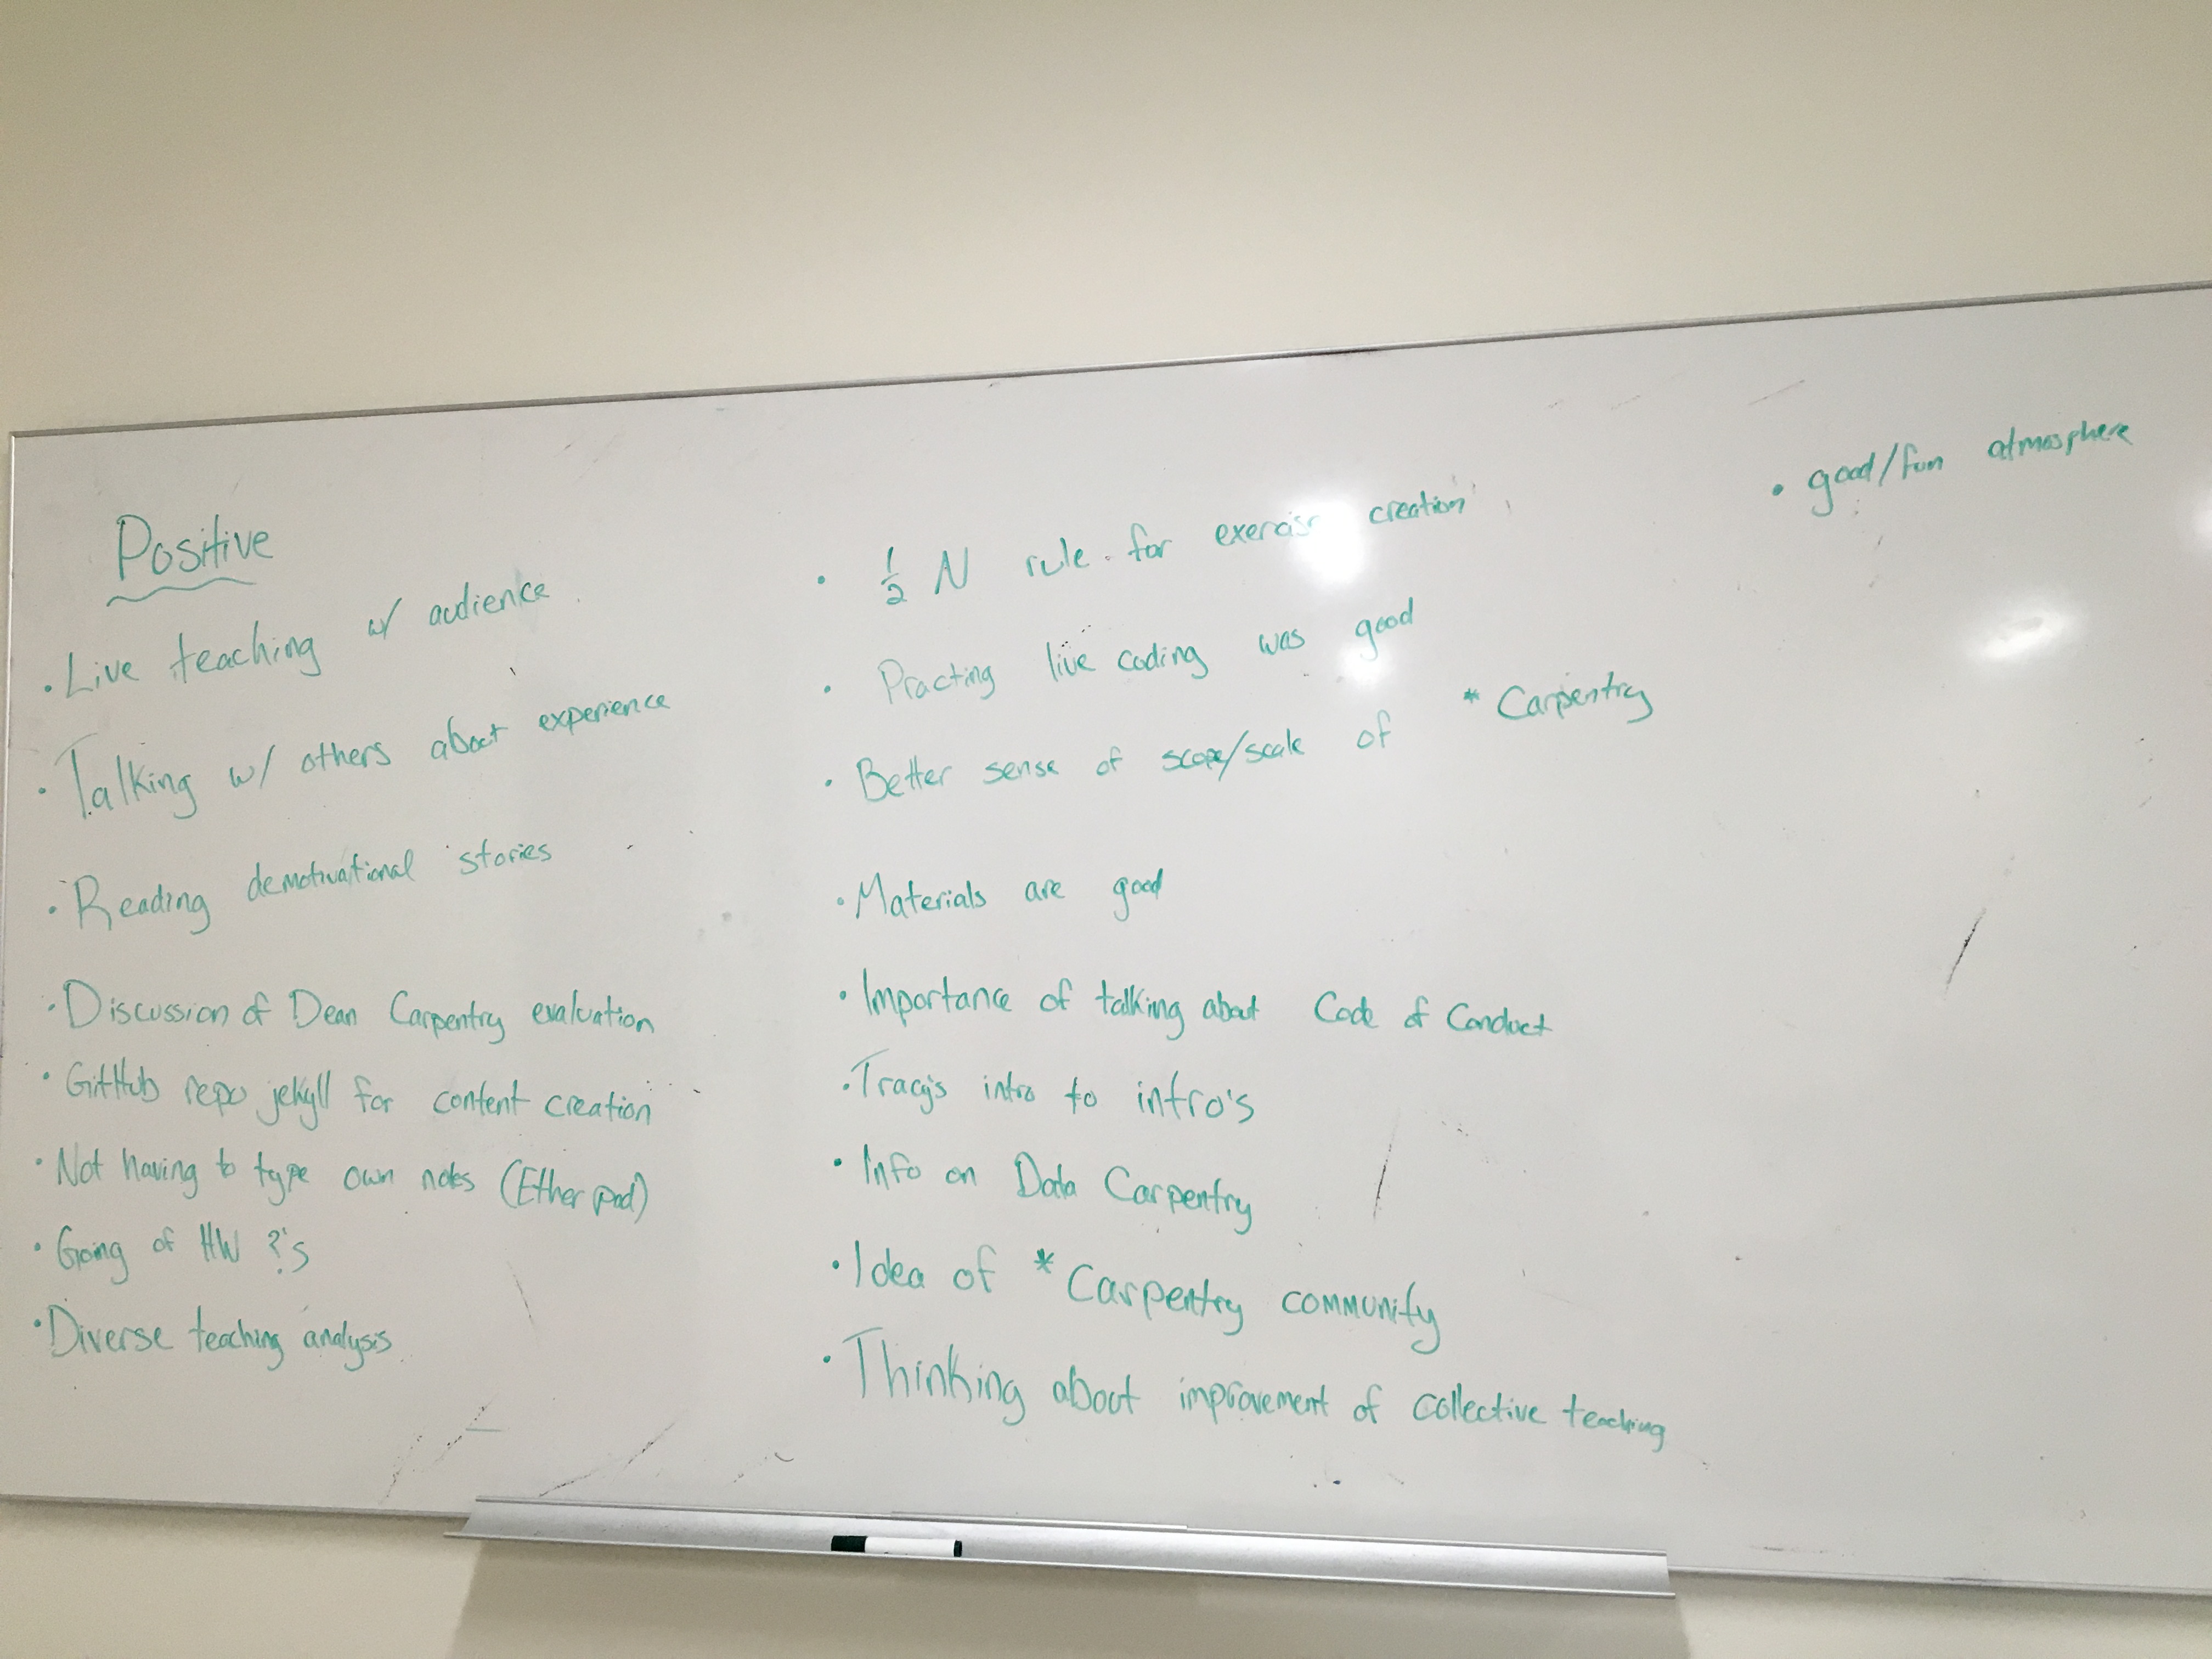 Positive
• Live teaching w/ audience
• Talking w/ others about experience
• Reading demotivational stories
• Discussion of Dean Carpentry evaluation
• GitHub repo jekyll for content creation
• Not having to type own notes (Etherpad)
• Going of HW ?'s
• Diverse teaching analysis
• 1/2 N rule for exercise creation
• Practing live coding was good
• Better sense of scope/scale of * Carpentry
• Materials are good
• Importance of talking about Code of Conduct
• Tracy's intro to intro's
• Info on Data Carpentry
• Idea of * Carpentry community
• Thinking about improvement of collective teaching
• good/fun atmosphere